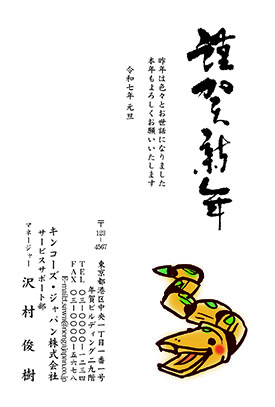 謹賀新年
昨年は色々とお世話になりました
本年もよろしくお願いいたします
令和七年 元旦
〒123-4567
東京都港区中央一丁目一番一号
年賀ビルディング二九階
TEL 〇三-〇〇〇〇-一二三四
FAX 〇三-〇〇〇〇-五六七八
キンコーズ・ジャパン株式会社
サービスサポート部
マネージャー 沢村 俊樹